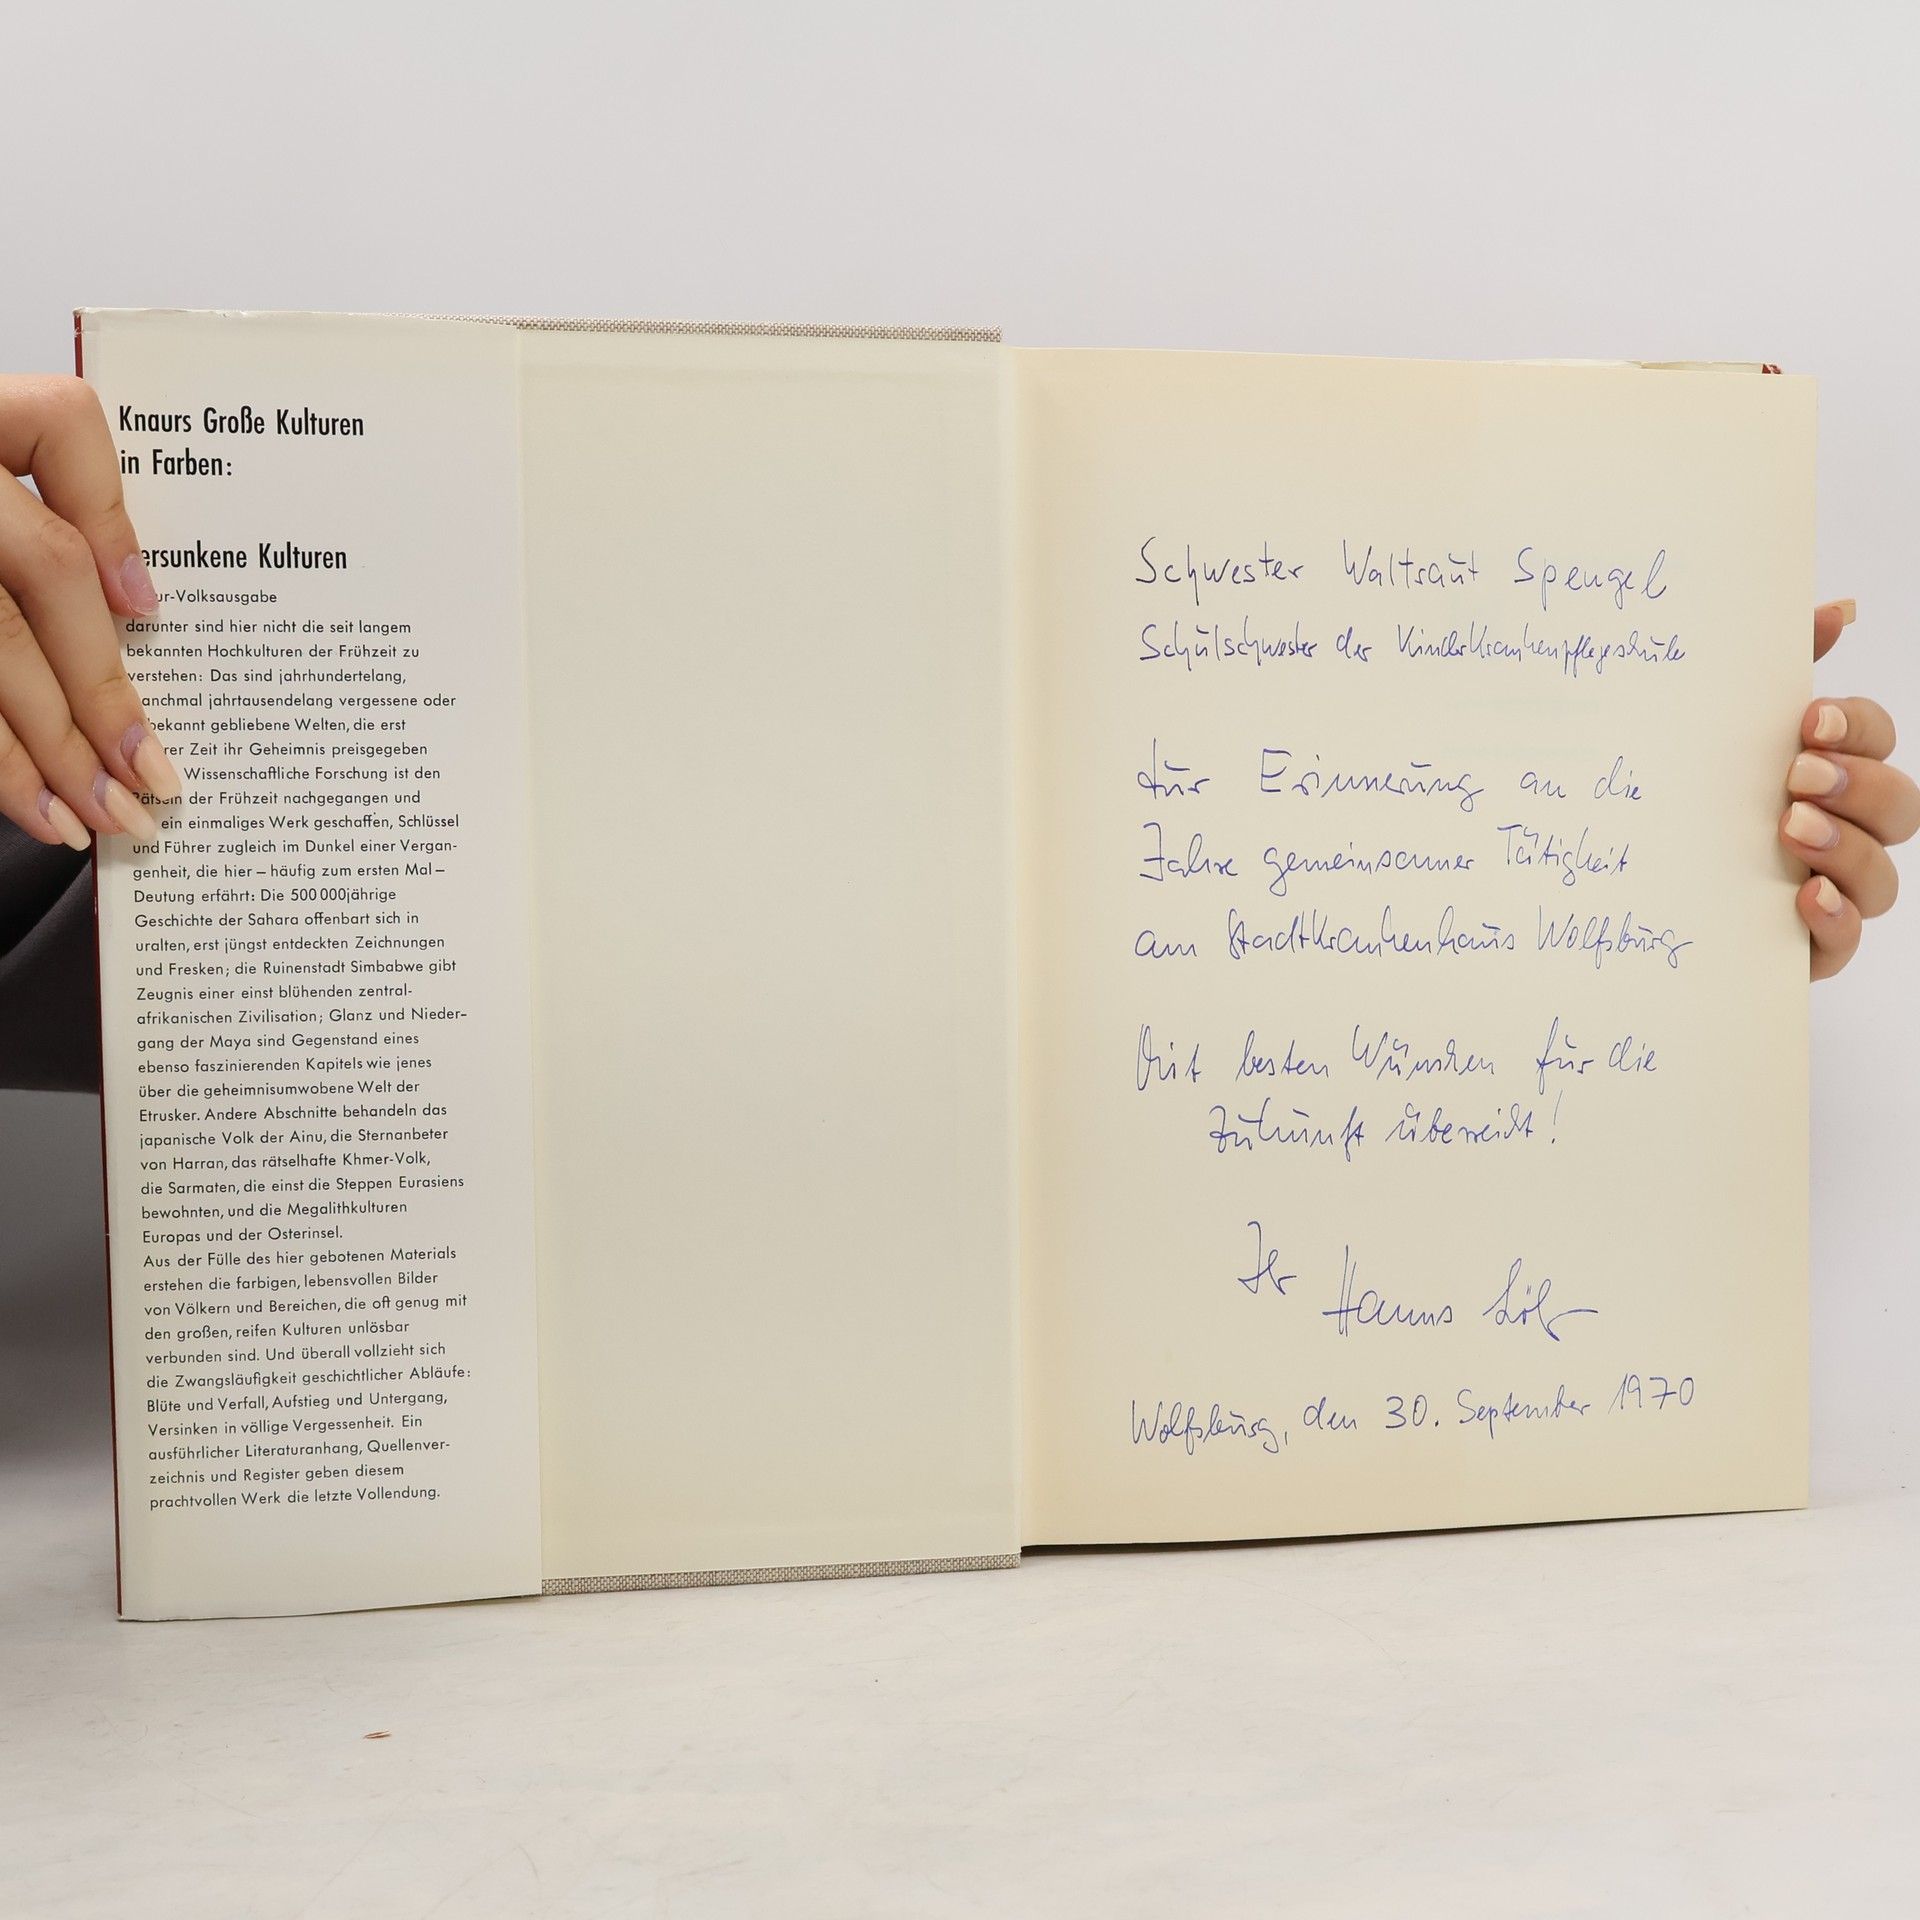 Knaurs Große Kulturen
in Farben:
ersunkene Kulturen
ur-Volksausgabe
darunter sind hier nicht die seit langem
bekannten Hochkulturen der Frühzeit zu
verstehen: Das sind jahrhundertelang,
anchmal jahrtausendelang vergessene oder
bekannt gebliebene Welten, die erst
rer Zeit ihr Geheimnis preisgegeben
Wissenschaftliche Forschung ist den
Rätseln der Frühzeit nachgegangen und
ein einmaliges Werk geschaffen, Schlüssel
und Führer zugleich im Dunkel einer Vergan-
genheit, die hier – häufig zum ersten Mal –
Deutung erfährt: Die 500 000jährige
Geschichte der Sahara offenbart sich in
uralten, erst jüngst entdeckten Zeichnungen
und Fresken; die Ruinenstadt Simbabwe gibt
Zeugnis einer einst blühenden zentral-
afrikanischen Zivilisation; Glanz und Nieder-
gang der Maya sind Gegenstand eines
ebenso faszinierenden Kapitels wie jenes
über die geheimnisumwobene Welt der
Etrusker. Andere Abschnitte behandeln das
japanische Volk der Ainu, die Sternanbeter
von Harran, das rätselhafte Khmer-Volk,
die Sarmaten, die einst die Steppen Eurasiens
bewohnten, und die Megalithkulturen
Europas und der Osterinsel.
Aus der Fülle des hier gebotenen Materials
erstehen die farbigen, lebensvollen Bilder
von Völkern und Bereichen, die oft genug mit
den großen, reifen Kulturen unlösbar
verbunden sind. Und überall vollzieht sich
die Zwangsläufigkeit geschichtlicher Abläufe:
Blüte und Verfall, Aufstieg und Untergang,
Versinken in völlige Vergessenheit. Ein
ausführlicher Literaturanhang, Quellenver-
zeichnis und Register geben diesem
prachtvollen Werk die letzte Vollendung.
Schwester Waltraut Spengel
Schulschwester der Kinderkrankenpflegeschule
Zur Erinnerung an die
Jahre gemeinsamer Tätigkeit
am Stadtkrankenhaus Wolfsburg
Mit besten Wünschen für die
Zukunft überreicht!
Ihr Hanns
Wolfsburg, den 30. September 1970